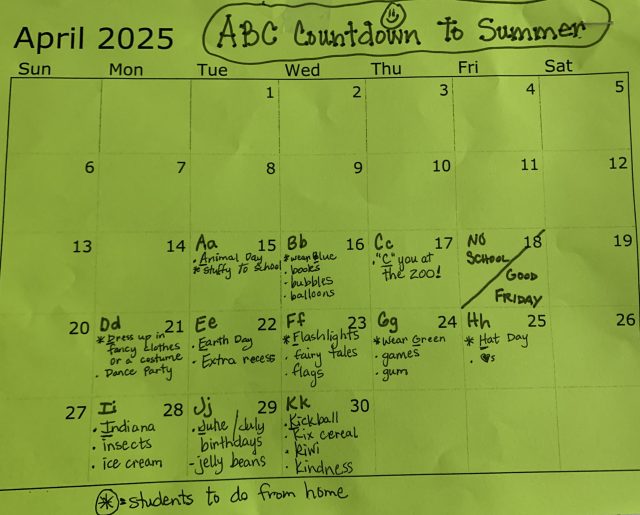 April 2025
ABC Countdown To Summer
Sun Mon Tue Wed Thu Fri Sat
1 2 3 4 5
6 7 8 9 10 11 12
13
14
Aa 15
• Animal Day
* stuffy to school
Bb 16
* wear Blue
• books
• bubbles
• balloons
Cc 17
• "C" you at
the ZOO!
18
NO
SCHOOL
GOOD
FRIDAY
19
20
Dd 21
* Dress up in
fancy clothes
or a costume
• Dance Party
Ee 22
• Earth Day
• Extra recess
Ff 23
* Flashlights
• fairy tales
• flags
Gg 24
* Wear Green
• games
• gum
Hh 25
* Hat Day
• ♥s
26
27
Ii 28
• Indiana
• insects
• ice cream
Jj 29
• June/July
birthdays
- jelly beans
Kk 30
• Kickball
• Kix cereal
• Kiwi
• kindness
* = students to do from home